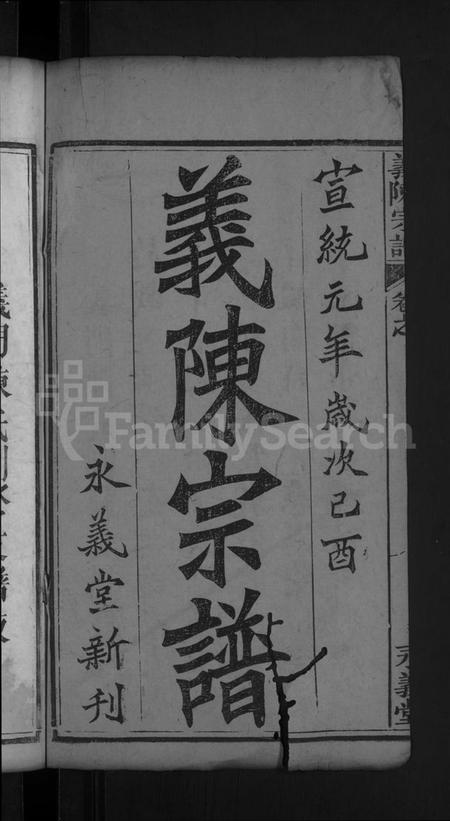 義陳宗譜
卷之
永義堂
宣統元年歲次己酉
義陳宗譜
永義堂新刊
FamilySearch